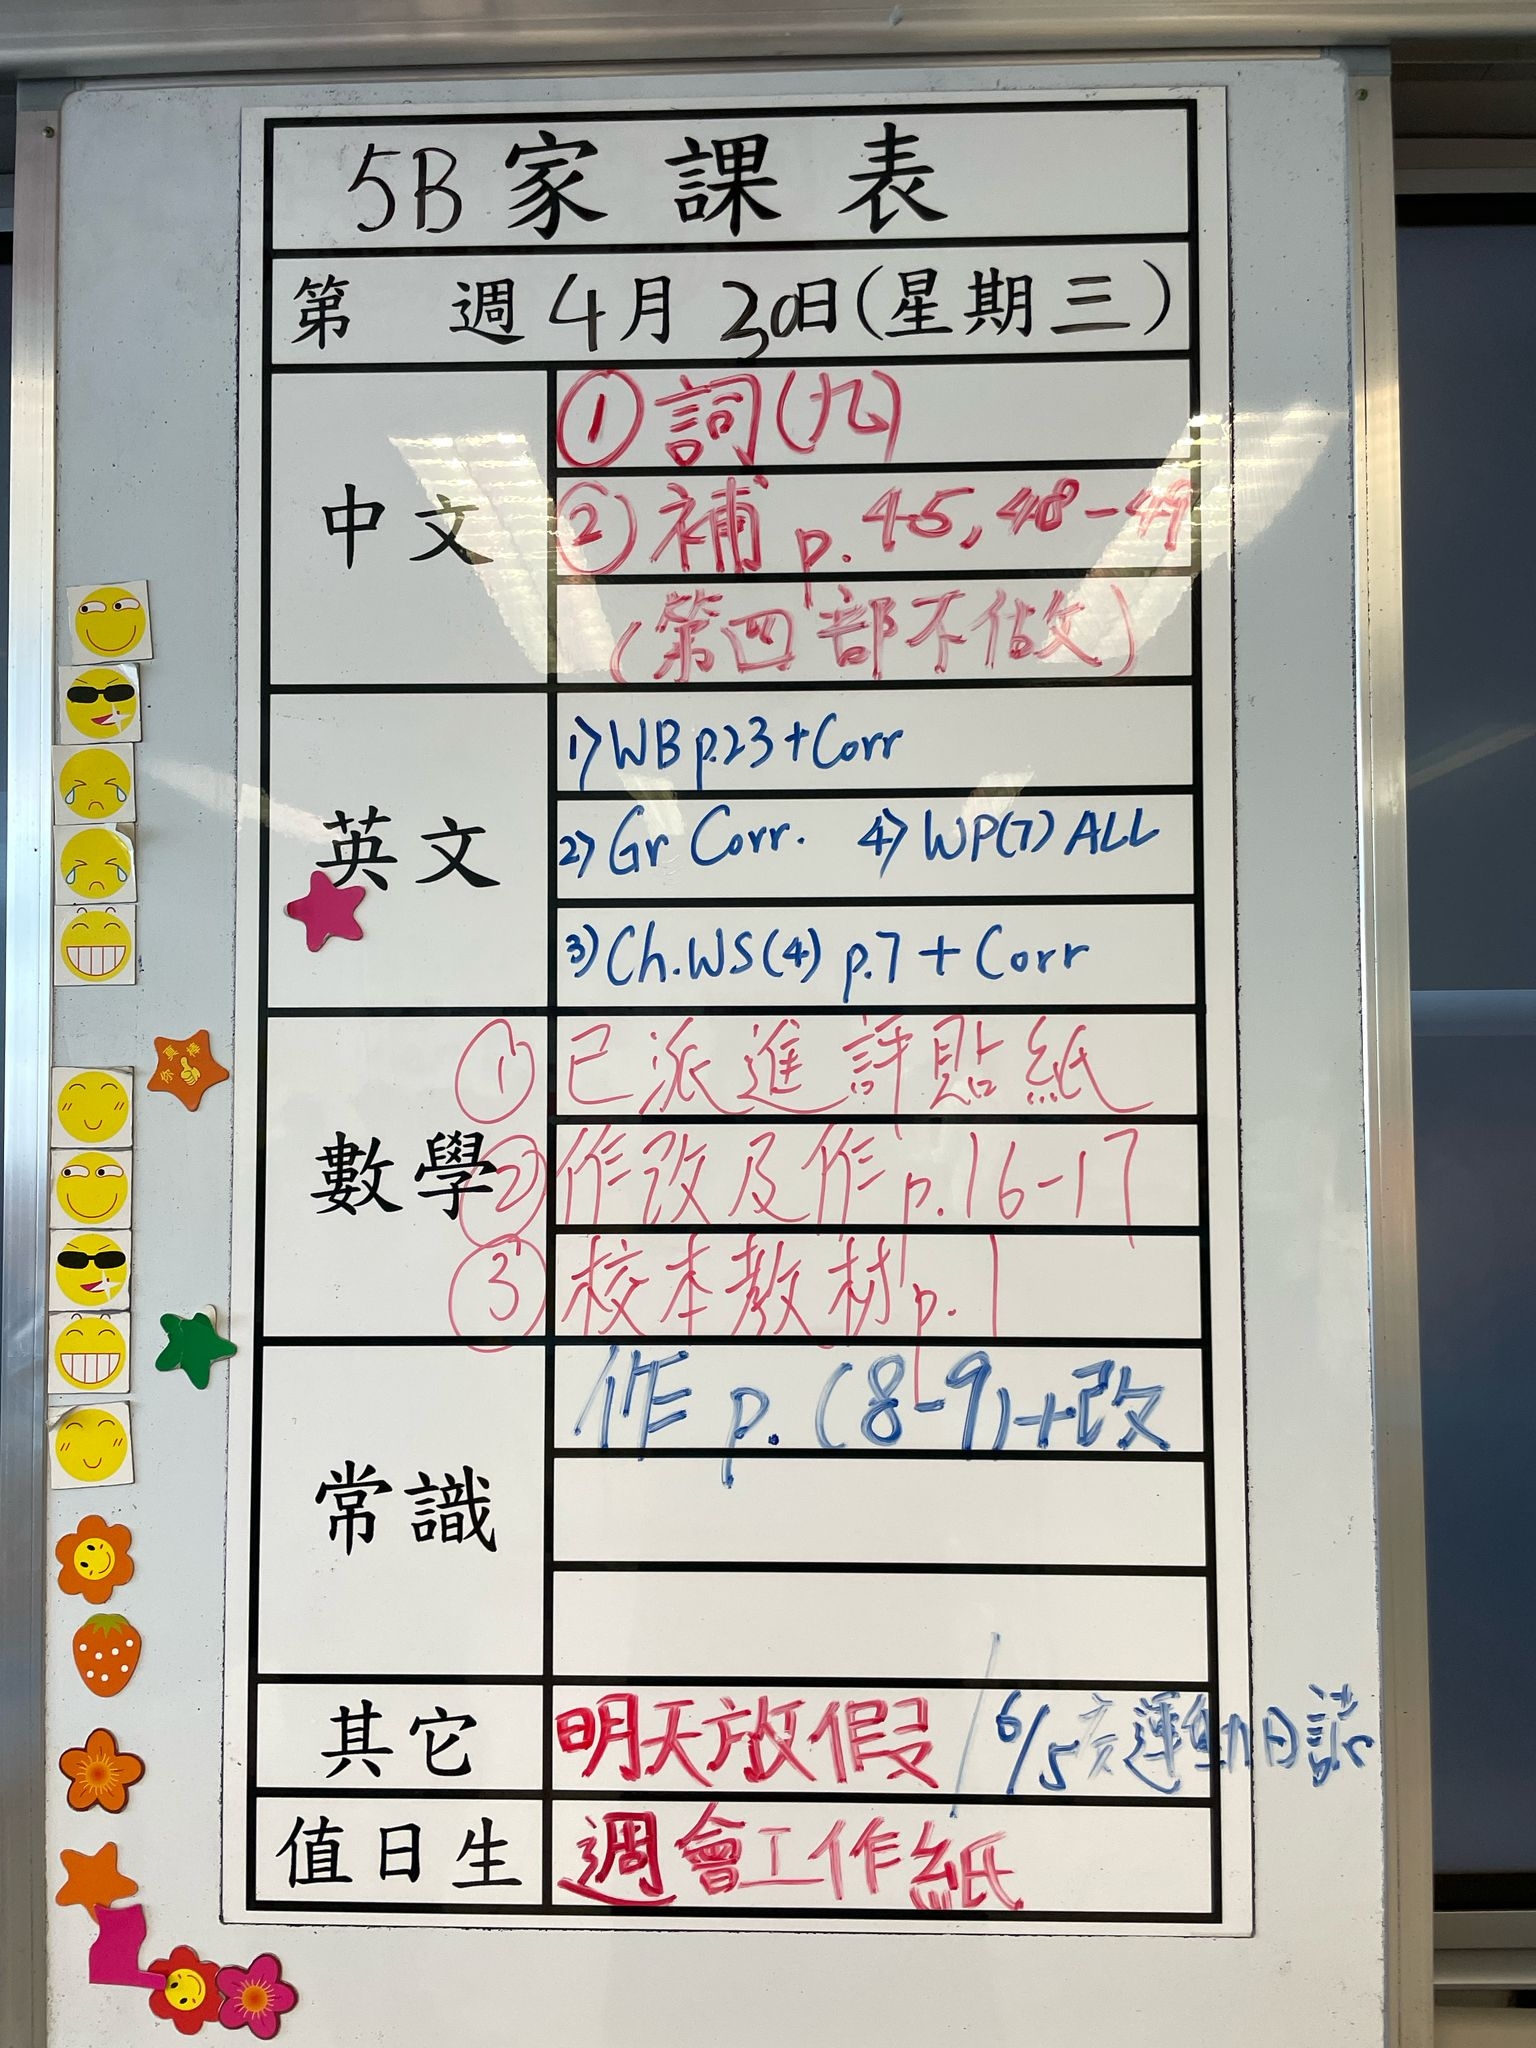 5B 家課表
第 週 4月30日(星期三)
中文
① 詞(九)
② 補 p. 45, 48-49
(第四部不做)
英文
1) WB p.23 + Corr
2) Gr Corr. 4) WP(7) ALL
3) Ch.WS(4) p.7 + Corr
數學
① 已派進評貼紙
② 作改及作 p.16-17
③ 校本教材 p.1
常識
作 p. (8-9)+改
其它
明天放假 / 6/5交運動日誌
值日生
週會工作紙
你真棒